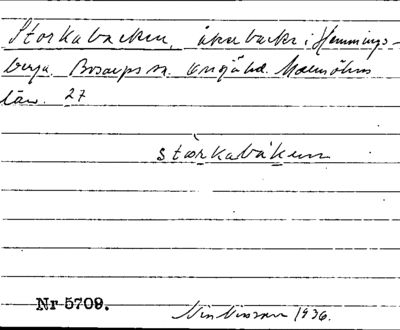 Storkabacken, åkerbacke i Hemmings-
berga. Bosarps sn. Onsjö hd. Malmöhus
län. 27
störkabáken
Nr 5709.
Nils Nilsson 1936.